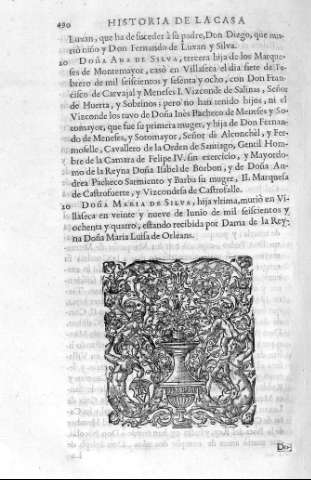 490 HISTORIA DE LA CASA
Luxan, que ha de suceder à su padre, Don Diego, que mu-
riò niño y Don Fernando de Luxan y Silva.
20 DOÑA ANA DE SILVA, tercera hija de los Marque-
ses de Montemayor, casò en Villaseca el dia siete de Fe-
brero de mil seiscientos y sesenta y ocho, con Don Fran-
cisco de Carvajal y Meneses I. Vizconde de Salinas, Señor
de Huerta, y Sobrinos; pero no han tenido hijos, ni el
Vizconde los tuvo de Doña Inès Pacheco de Meneses y So-
tomayor, que fue su primera muger, y hija de Don Fernan-
do de Meneses, y Sotomayor, Señor de Alconchèl, y Fer-
moselle, Cavallero de la Orden de Santiago, Gentil Hom-
bre de la Camara de Felipe IV. sin exercicio, y Mayordo-
mo de la Reyna Doña Isabel de Borbon, y de Doña An-
drea Pacheco Sarmiento y Barba su muger, II. Marquesa
de Castrofuerte, y Vizcondesa de Castrofalle.
20 DOÑA MARIA DE SILVA, hija vltima, muriò en Vi-
llaseca en veinte y nueve de Iunio de mil seiscientos y
ochenta y quatro, estando recibida por Dama de la Rey-
na Doña Maria Luisa de Orleans.